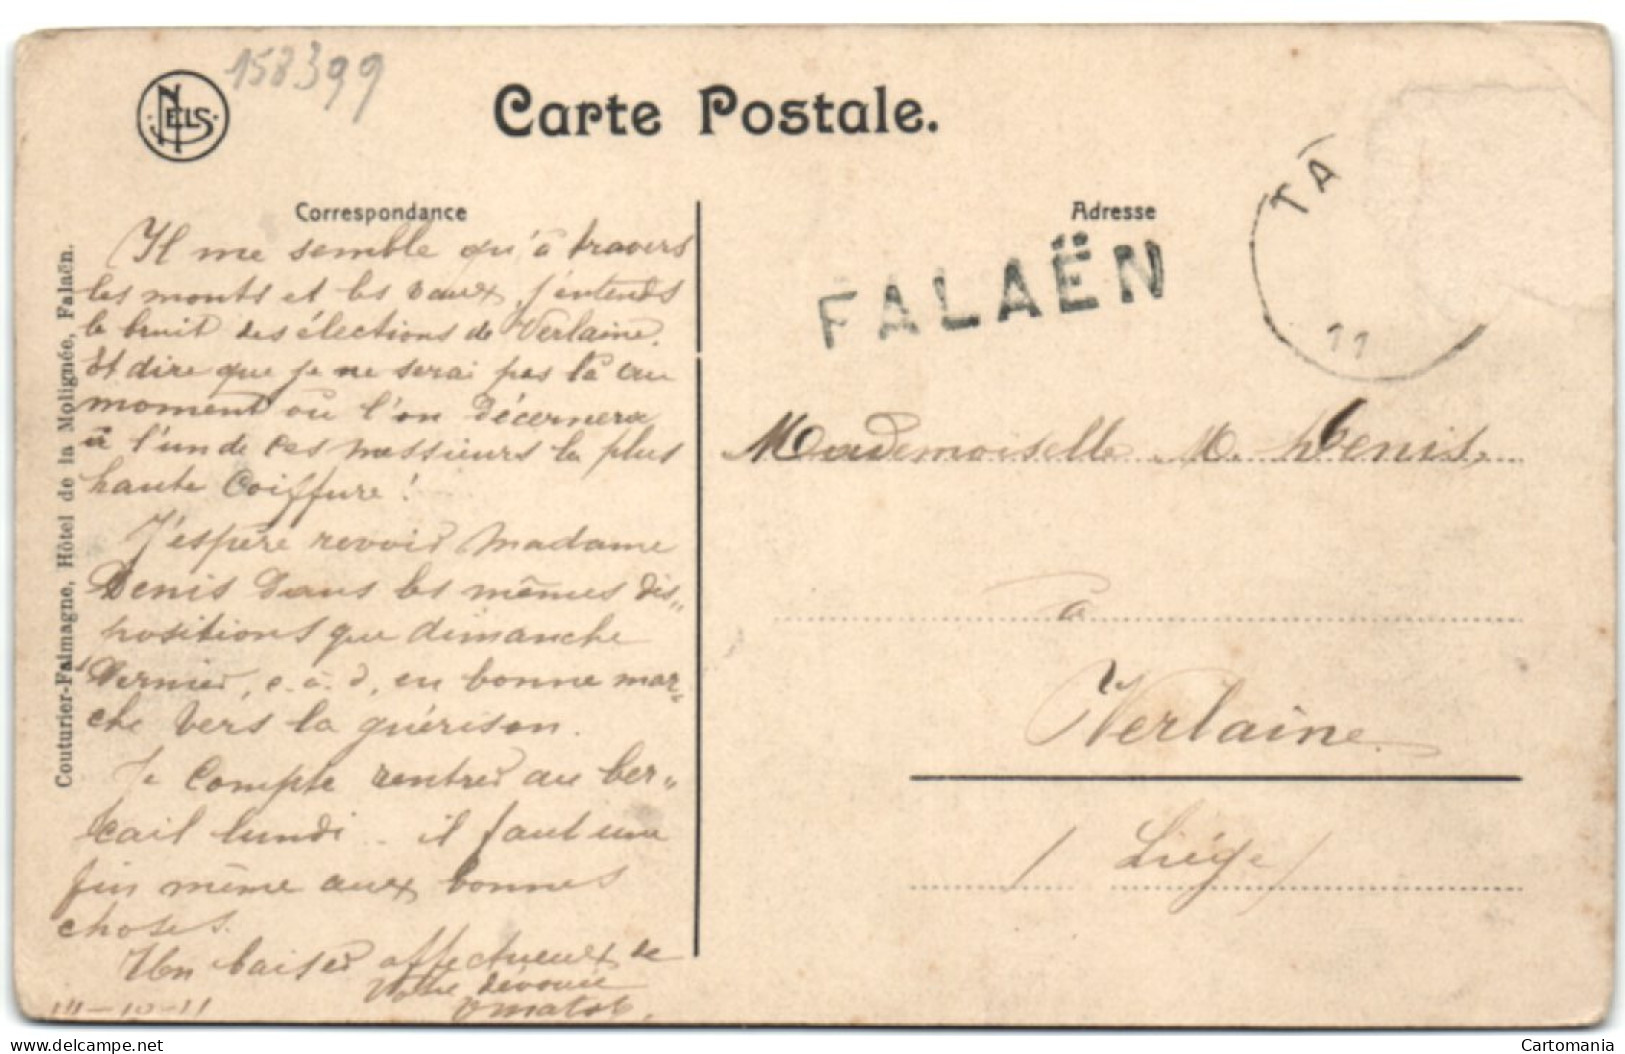 158399
NELS
Carte Postale.
Correspondance
Adresse
Couturier-Falmagne, Hôtel de la Molignée, Falaën.
Il me semble qu'à travers
les monts et les vaux, j'entends
le bruit des élections de Verlaine.
Et dire que je ne serai pas là au
moment où l'on décernera
à l'un de ces messieurs la plus
haute Coiffure !
J'espère revoir Madame
Denis dans les mêmes dis-
positions que dimanche
dernier, c. à. d. en bonne mar-
che vers la guérison.
Je compte rentrer au ber-
cail lundi .. il faut une
fin même aux bonnes
choses.
Un baiser affectueux de
Votre dévouée
10-11
FALAËN
TA
11
Mademoiselle M. Denis.
à
Verlaine
( Liége )
www.delcampe.net
Cartomania